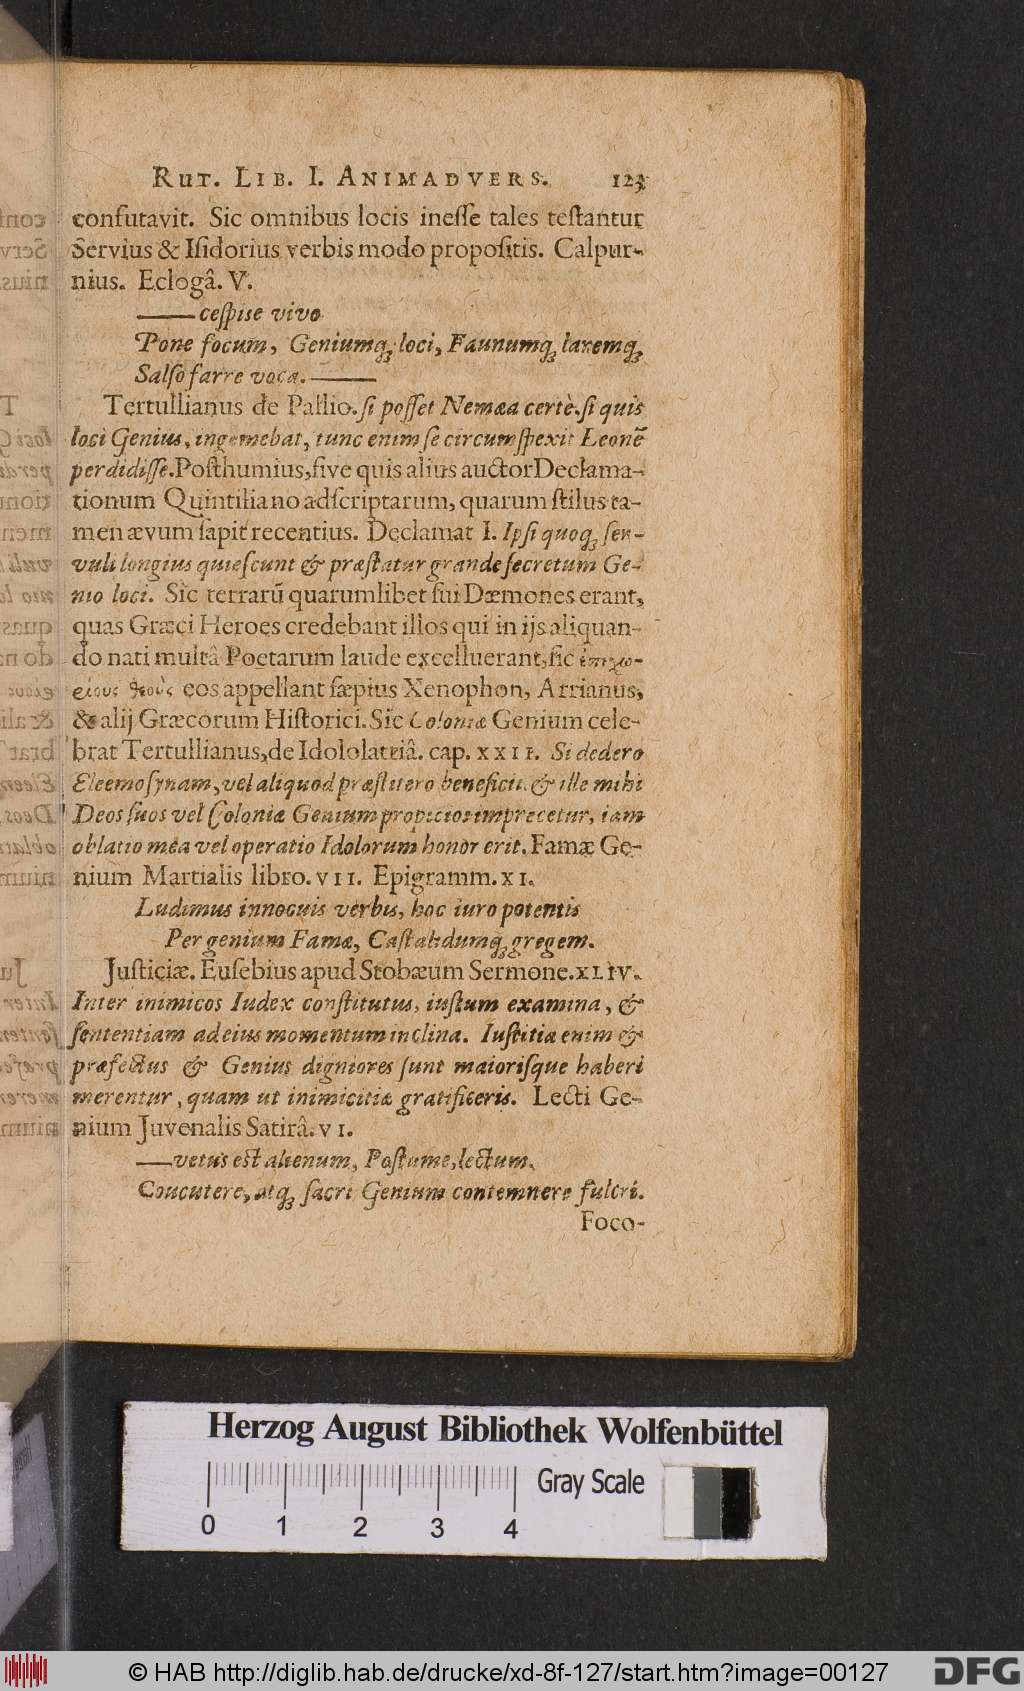 RUT. LIB. I. ANIMADVERS. 123
confutavit. Sic omnibus locis inesse tales testantur
Servius & Isidorius verbis modo propositis. Calpur-
nius. Eclogâ. V.
—— cespite vivo
Pone focum, Geniumq; loci, Faunumq; laremq;
Salso farre voca. ——
Tertullianus de Pallio. si posset Nemæa certè. si quis
loci Genius, ingemebat, tunc enim se circumspexit Leonē
perdidisse. Posthumius, sive quis alius auctor Declama-
tionum Quintiliano adscriptarum, quarum stilus ta-
men ævum sapit recentius. Declamat I. Ipsi quoq; ser-
vuli longius quiescunt & præstatur grande secretum Ge-
nio loci. Sic terrarū quarumlibet sui Dæmones erant,
quas Græci Heroes credebant illos qui in ijs aliquan-
do nati multâ Poetarum laude excelluerant, sic ἐπιχω-
ρίους θεοὺς eos appellant sæpius Xenophon, Arrianus,
& alij Græcorum Historici. Sic Coloniæ Genium cele-
brat Tertullianus, de Idololatriâ. cap. XXII. Si dedero
Eleemosynam, vel aliquod præstitero beneficii. & ille mihi
Deos suos vel Coloniæ Genium propicios imprecetur, iam
oblatio mea vel operatio Idolorum honor erit. Famæ Ge-
nium Martialis libro. VII. Epigramm. XI.
Ludimus innocuis verbis, hoc iuro potentis
Per genium Famæ, Castalidumq; gregem.
Justiciæ. Eusebius apud Stobæum Sermone. XLIV.
Inter inimicos Iudex constitutus, iustum examina, &
sententiam ad eius momentum inclina. Iustitia enim &
præfectus & Genius digniores sunt maiorisque haberi
merentur, quam ut inimicitiæ gratificeris. Lecti Ge-
nium Juvenalis Satirâ. VI.
—— vetus est alienum, Postume, lectum,
Coucutere, atq; sacri Genium contemnere fulcri.
Foco-
Herzog August Bibliothek Wolfenbüttel
Gray Scale
0 1 2 3 4
© HAB http://diglib.hab.de/drucke/xd-8f-127/start.htm?image=00127 DFG